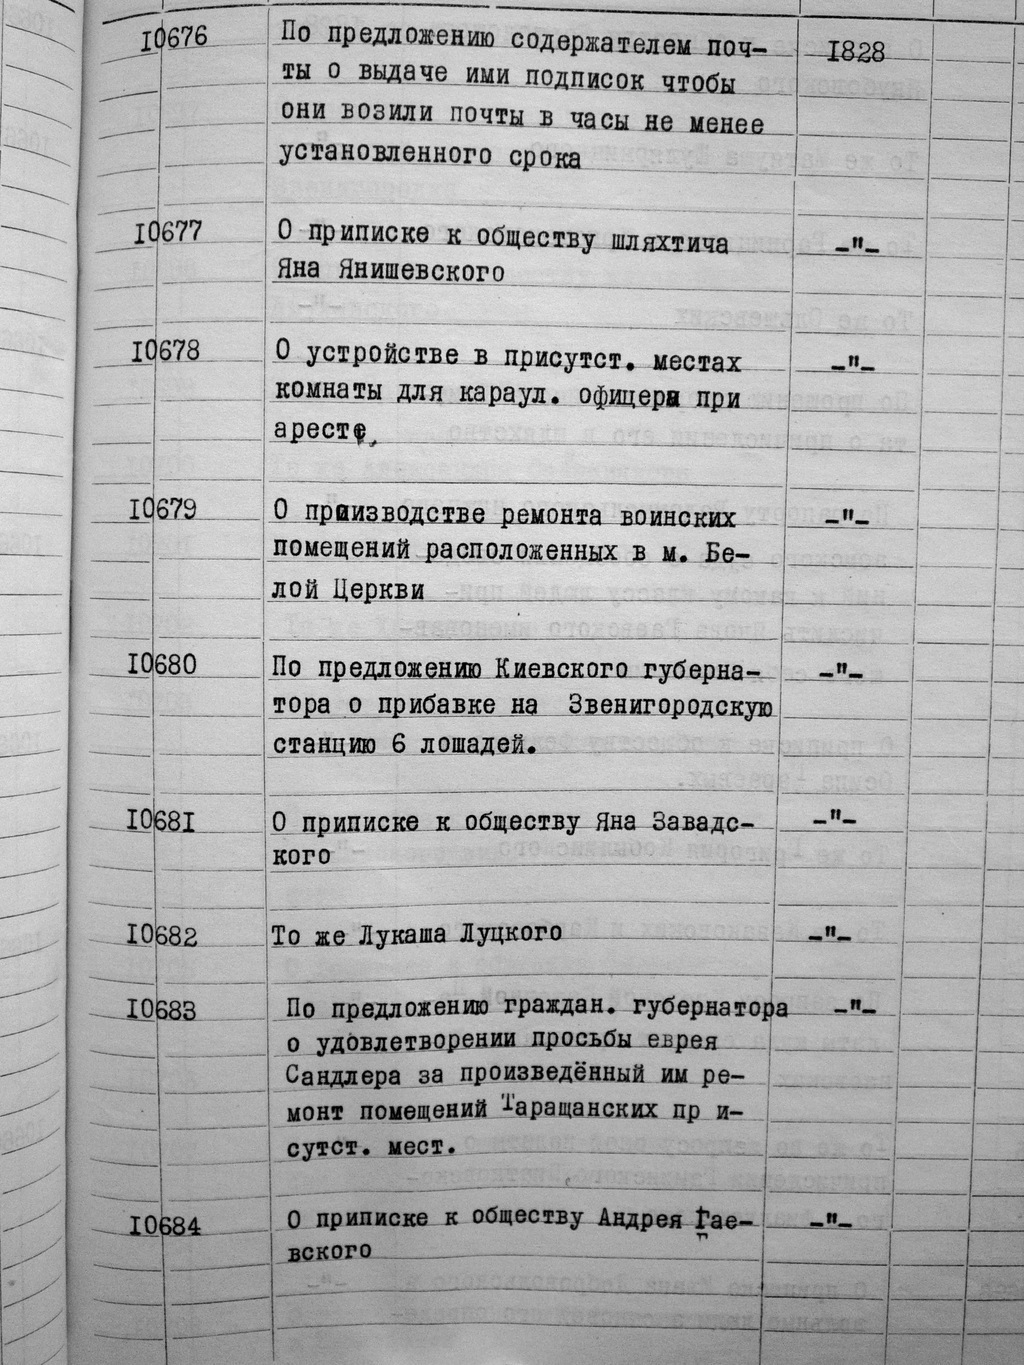 10676 По предложению содержателем поч- 1828
ты о выдаче ими подписок чтобы
они возили почты в часы не менее
установленного срока
10677 О приписке к обществу шляхтича -"-
Яна Янишевского
10678 О устройстве в присутст. местах -"-
комнаты для караул. офицера при
аресте
10679 О производстве ремонта воинских -"-
помещений расположенных в м. Бе-
лой Церкви
10680 По предложению Киевского губерна- -"-
тора о прибавке на Звенигородскую
станцию 6 лошадей.
10681 О приписке к обществу Яна Завадс- -"-
кого
10682 То же Лукаша Луцкого -"-
10683 По предложению граждан. губернатора -"-
о удовлетворении просьбы еврея
Сандлера за произведённый им ре-
монт помещений Таращанских пр и-
сутст. мест.
10684 О приписке к обществу Андрея Гае- -"-
вского